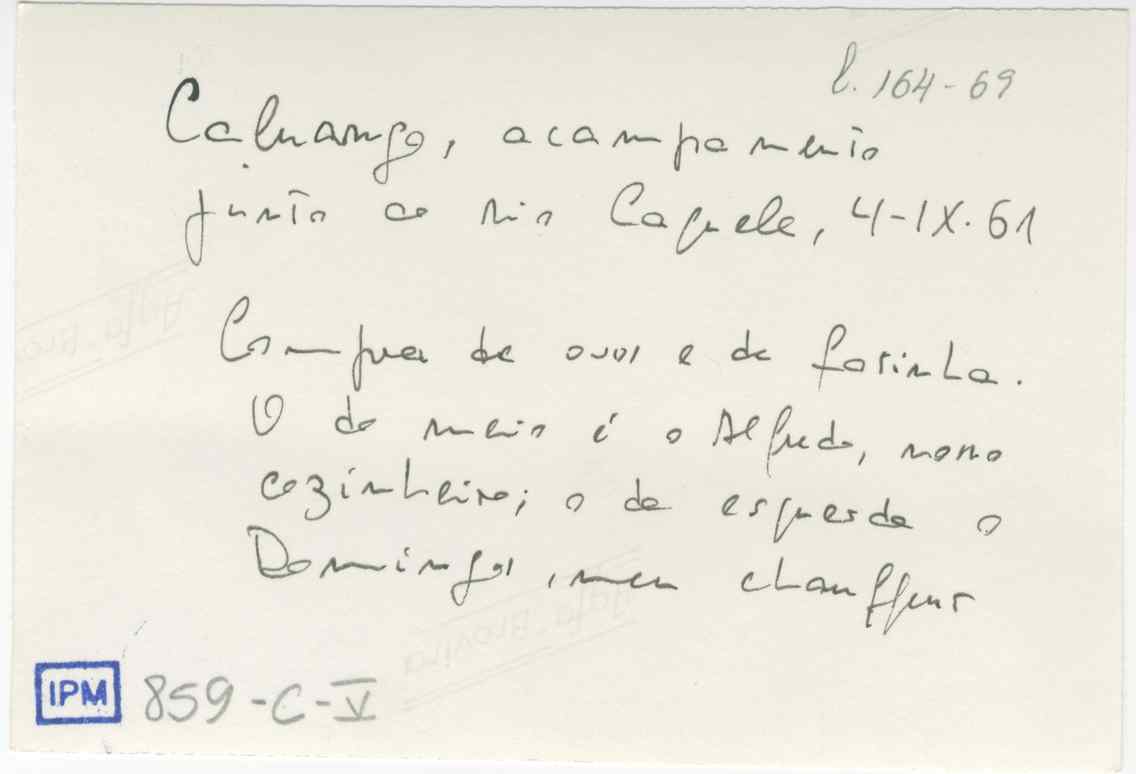 l. 164-69
Caluango, acampamento
junto ao rio Caquele, 4-IX-61
Compra de ovos e de farinha.
O do meio é o Alfredo, nosso
cozinheiro; o da esquerda o
Domingos, meu chauffeur
Agfa-Brovira
Agfa-Brovira
IPM 859-C-V